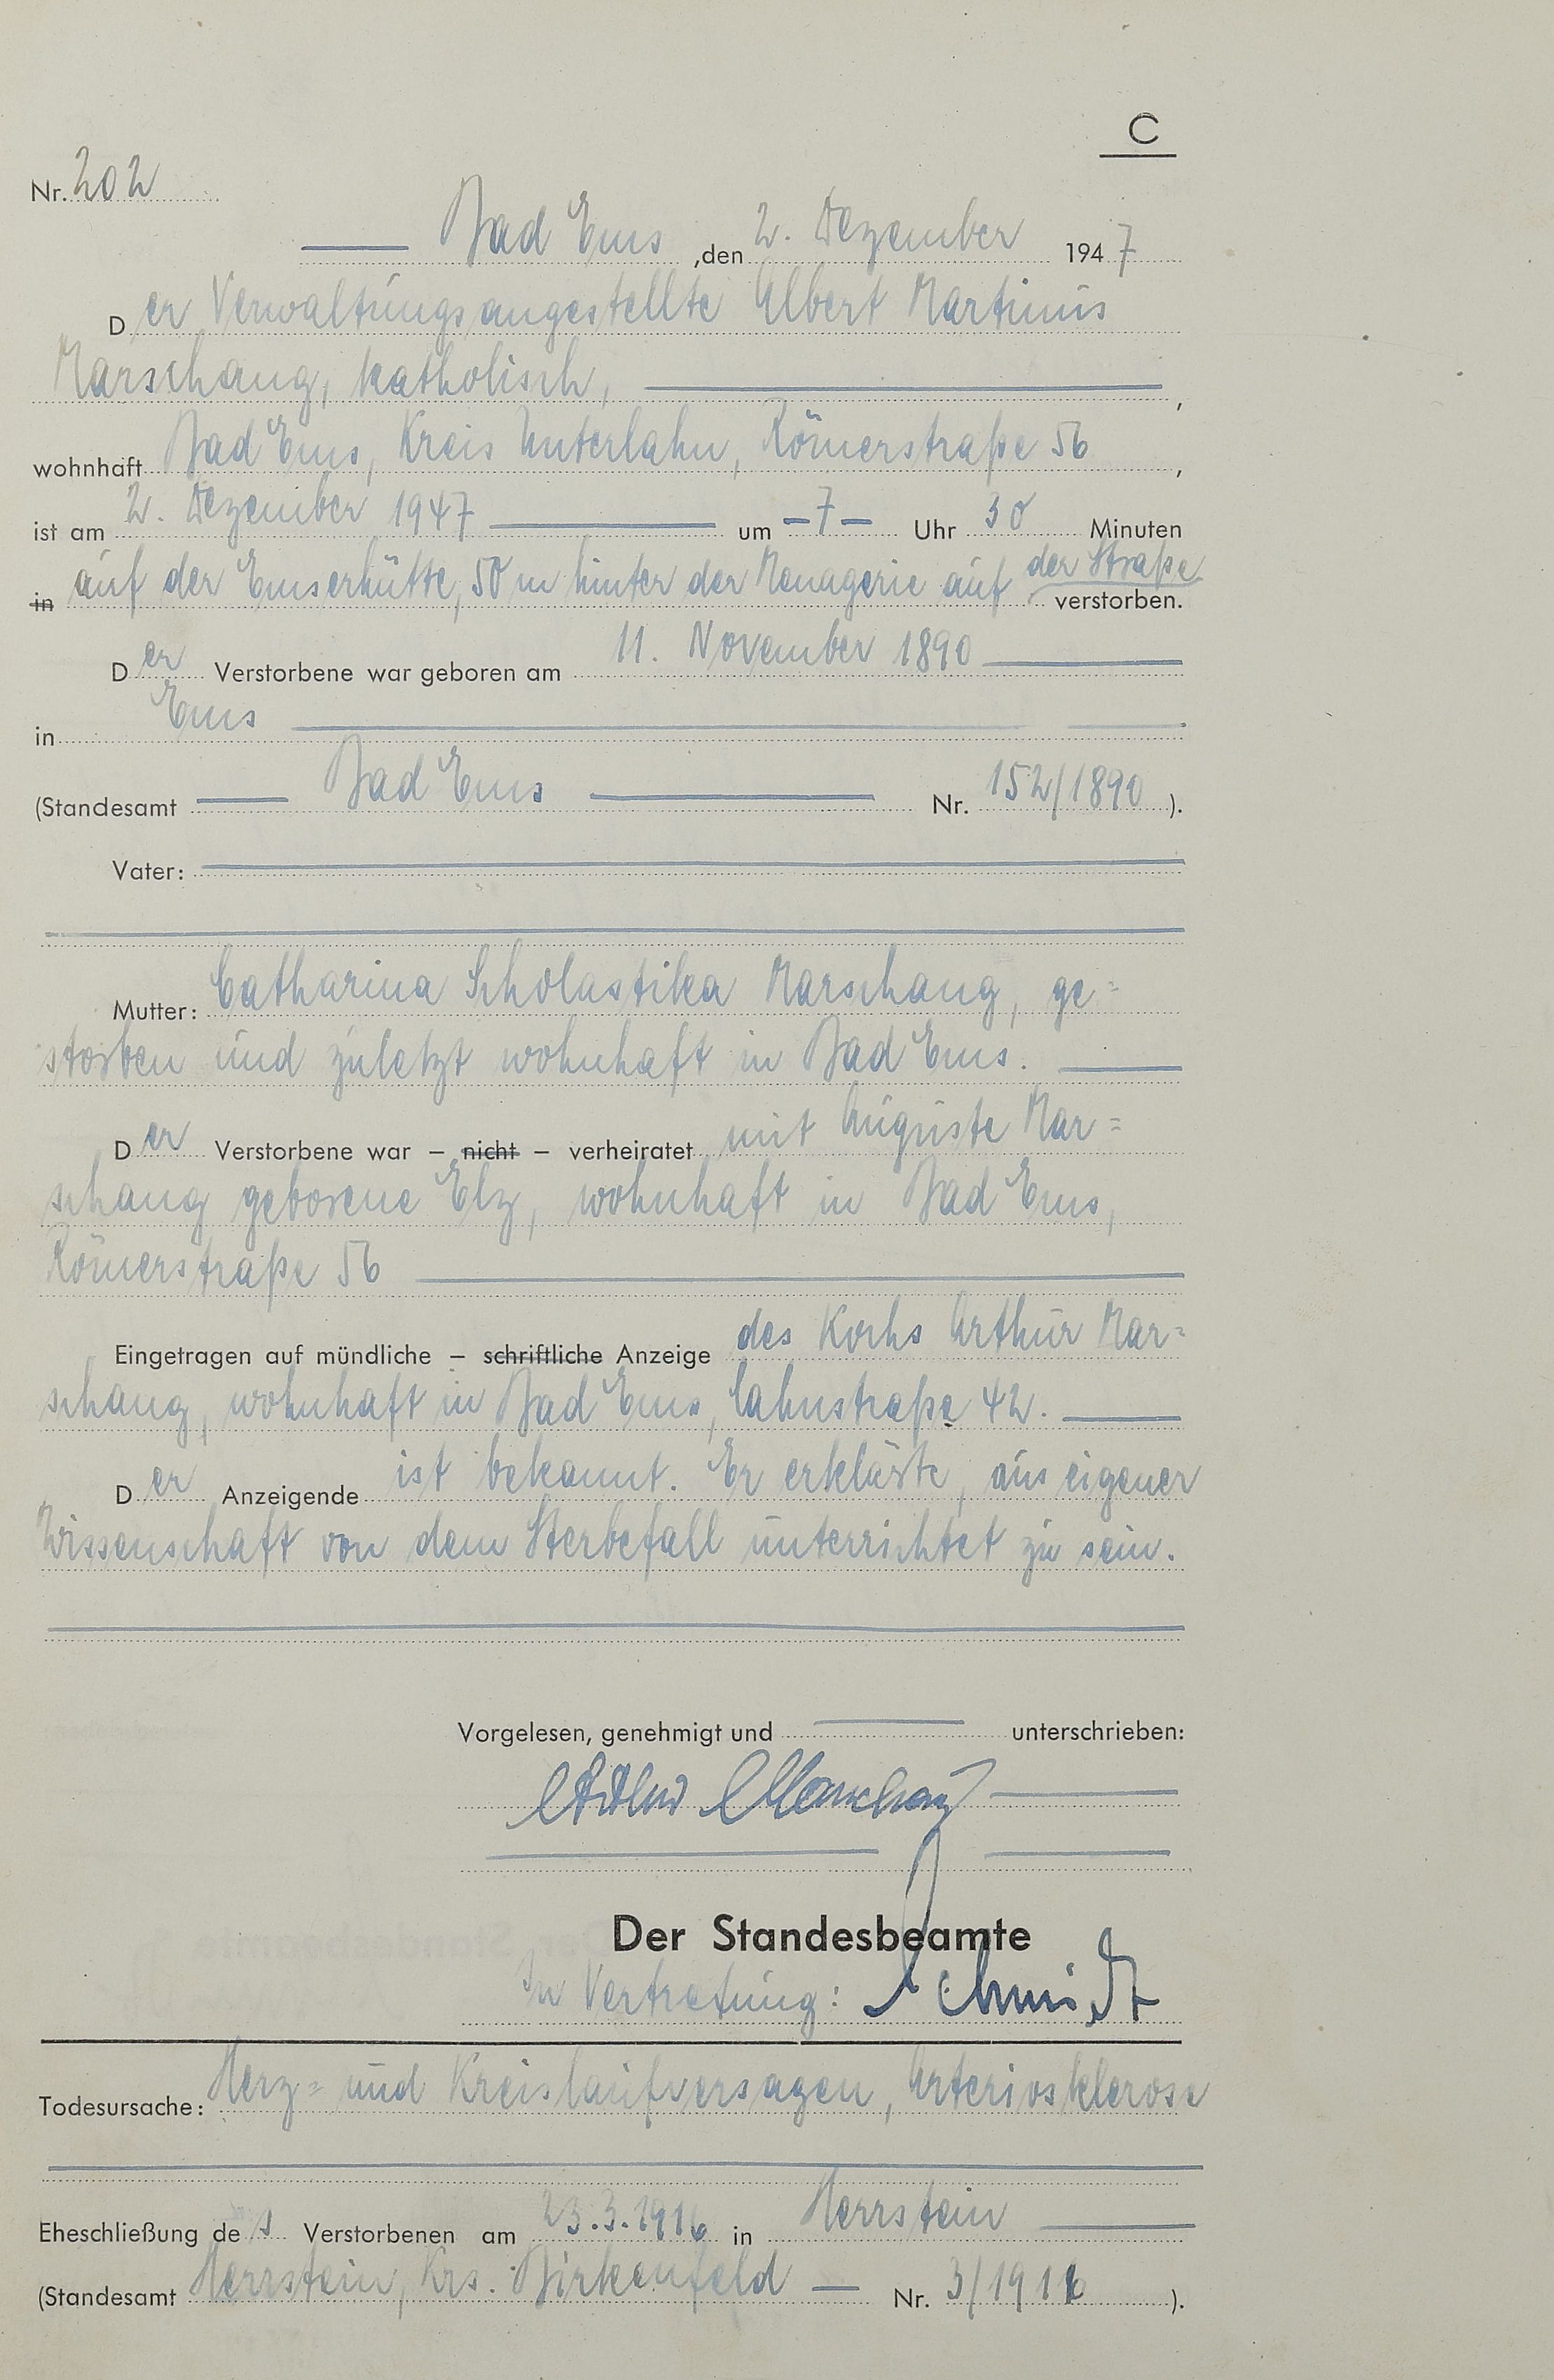 C
Nr. 202
Bad Ems, den 2. Dezember 1947
Der Verwaltungsangestellte Albert Martinus
Marschang, katholisch, ,
wohnhaft Bad Ems, Kreis Unterlahn, Römerstraße 56 ,
ist am 2. Dezember 1947 um - 7 - Uhr 30 Minuten
in auf der Emserhütte, 50 m hinter der Menagerie auf der Straße verstorben.
Der Verstorbene war geboren am 11. November 1890
in Ems
(Standesamt Bad Ems Nr. 152/1890 ).
Vater:
Mutter: Catharina Scholastika Marschang, ge=
storben und zuletzt wohnhaft in Bad Ems.
Der Verstorbene war – nicht – verheiratet mit Auguste Mar=
schang geborene Elz, wohnhaft in Bad Ems,
Römerstraße 56
Eingetragen auf mündliche – schriftliche Anzeige des Kochs Arthur Mar=
schang, wohnhaft in Bad Ems, Lahnstraße 42.
Der Anzeigende ist bekannt. Er erklärte, aus eigener
Wissenschaft von dem Sterbefall unterrichtet zu sein.
Vorgelesen, genehmigt und unterschrieben:
Arthur Marschang
Der Standesbeamte
In Vertretung: Schmidt
Todesursache: Herz= und Kreislaufversagen, Arteriosklerose
Eheschließung des Verstorbenen am 23.3.1916 in Herrstein
(Standesamt Herrstein, Krs. Birkenfeld — Nr. 3/1916 ).